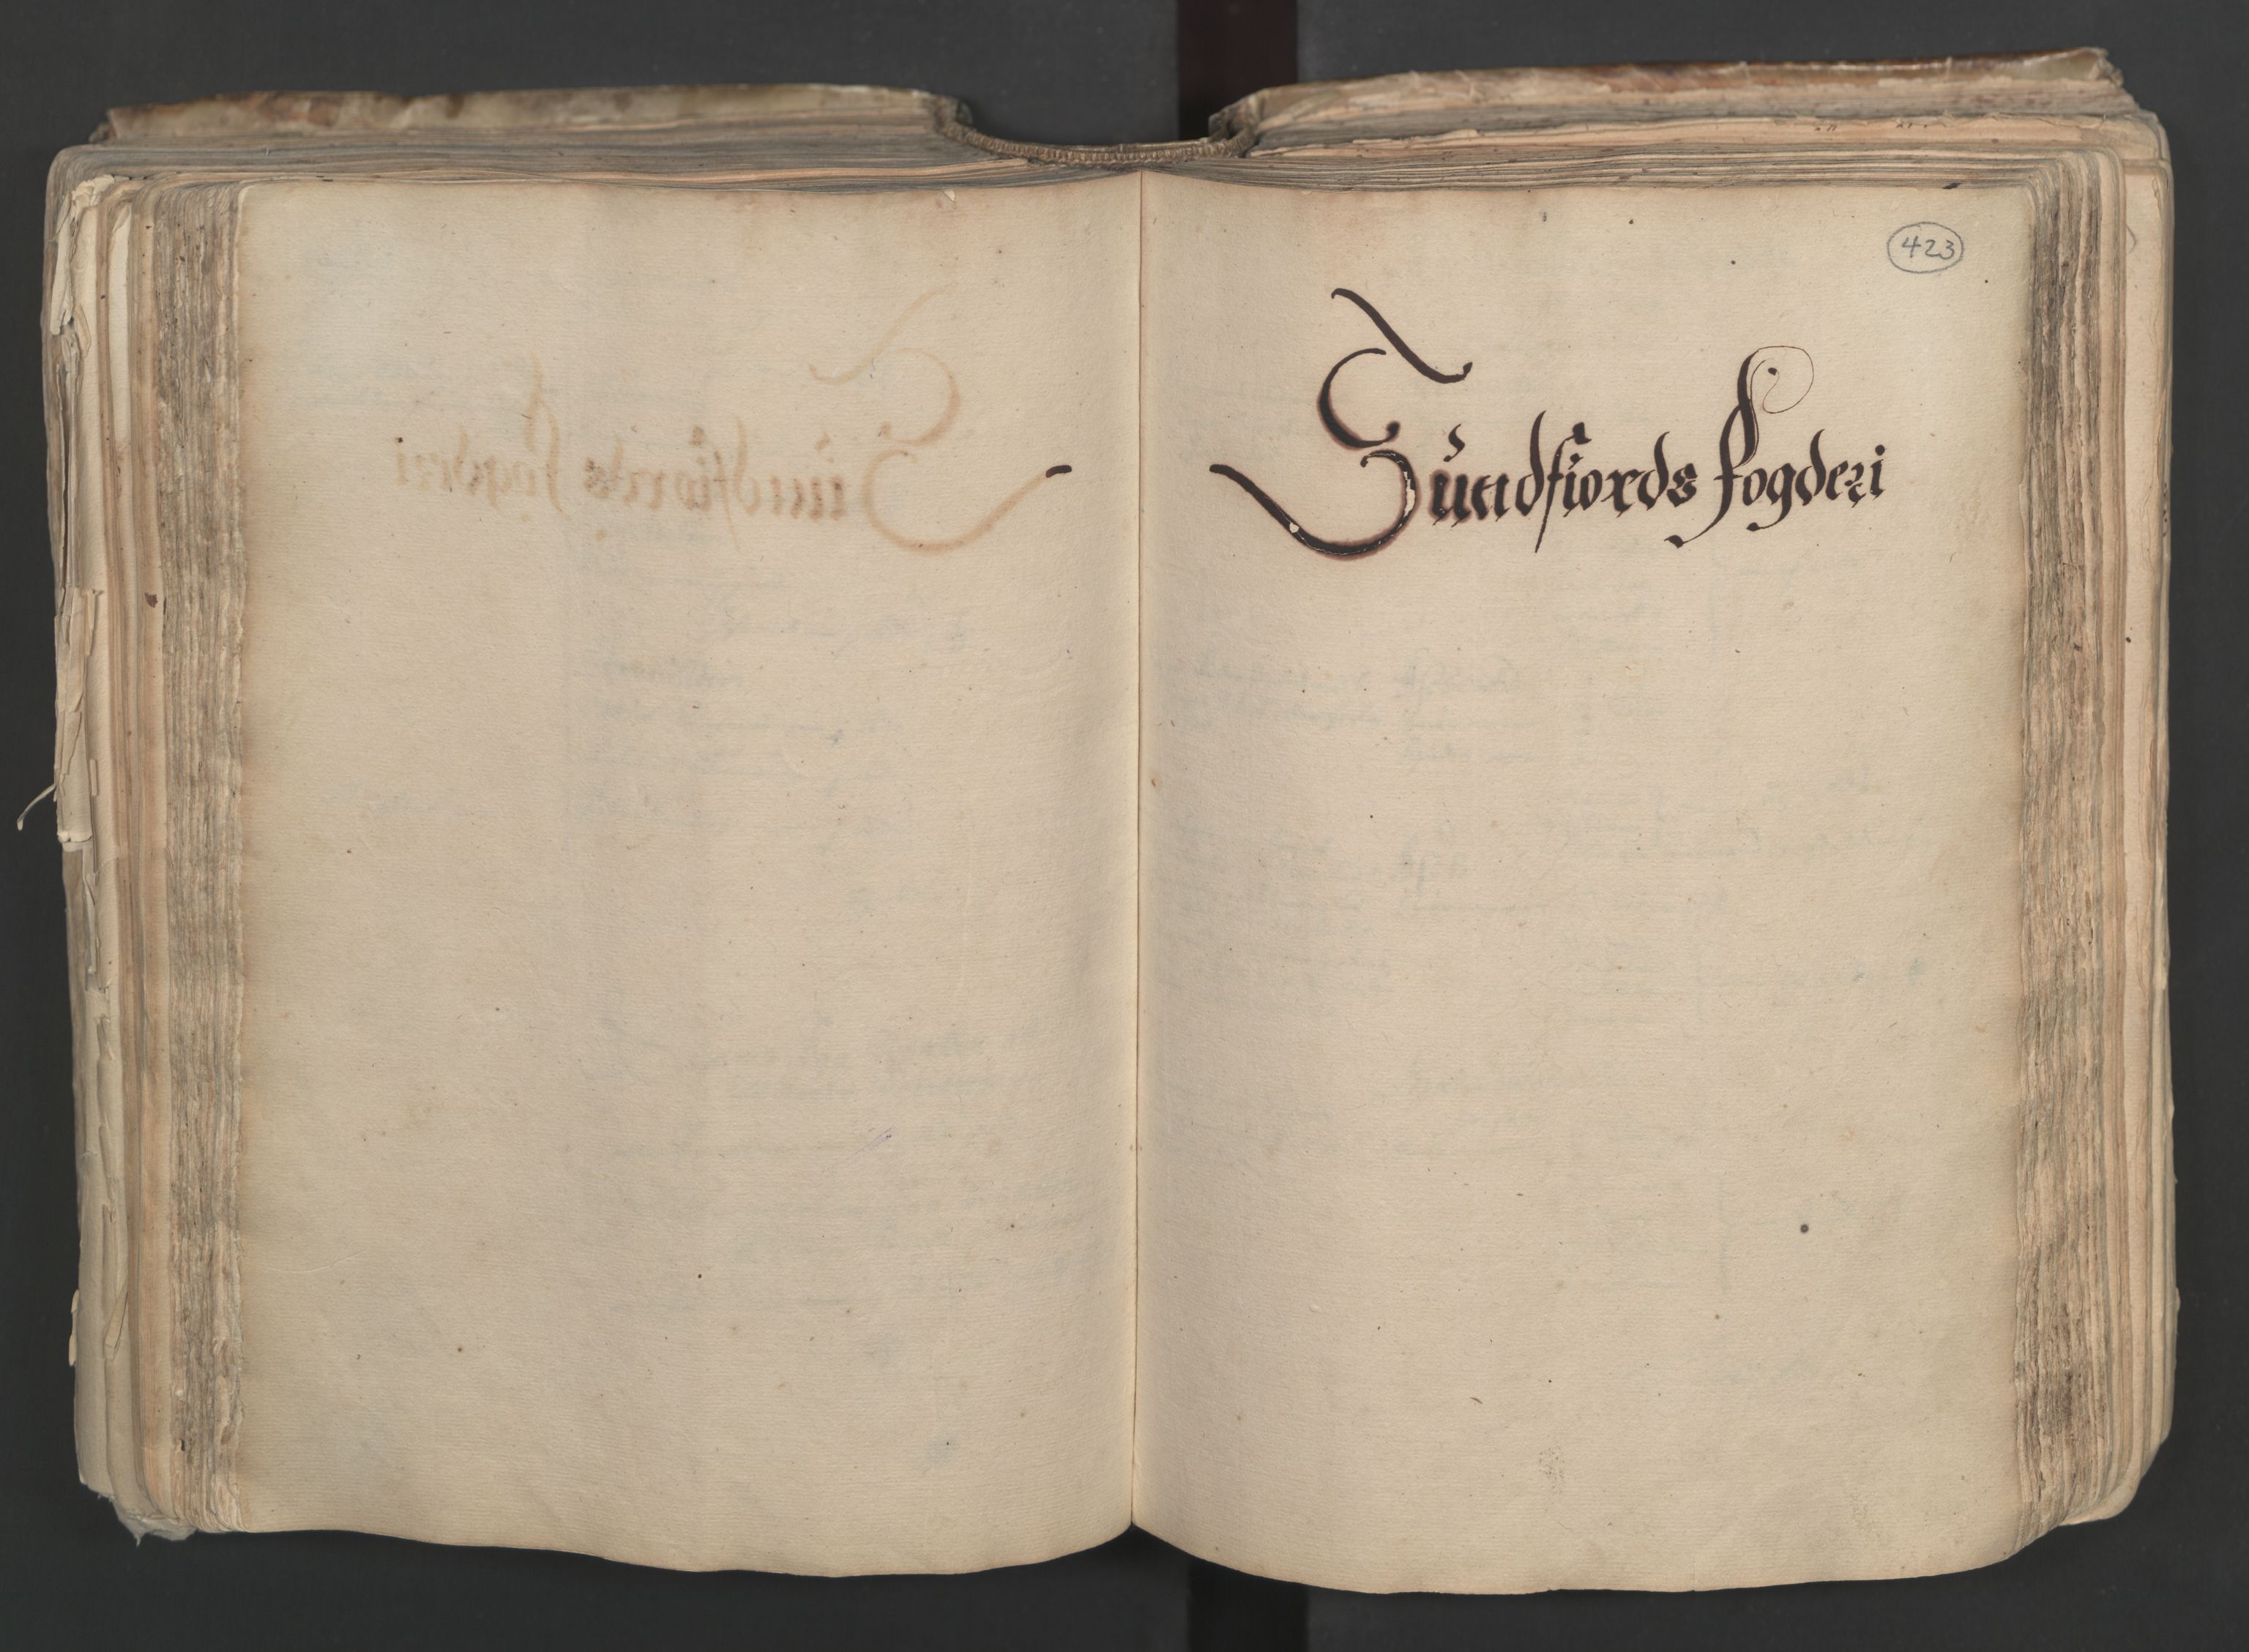 423
Sundfiords fogderi